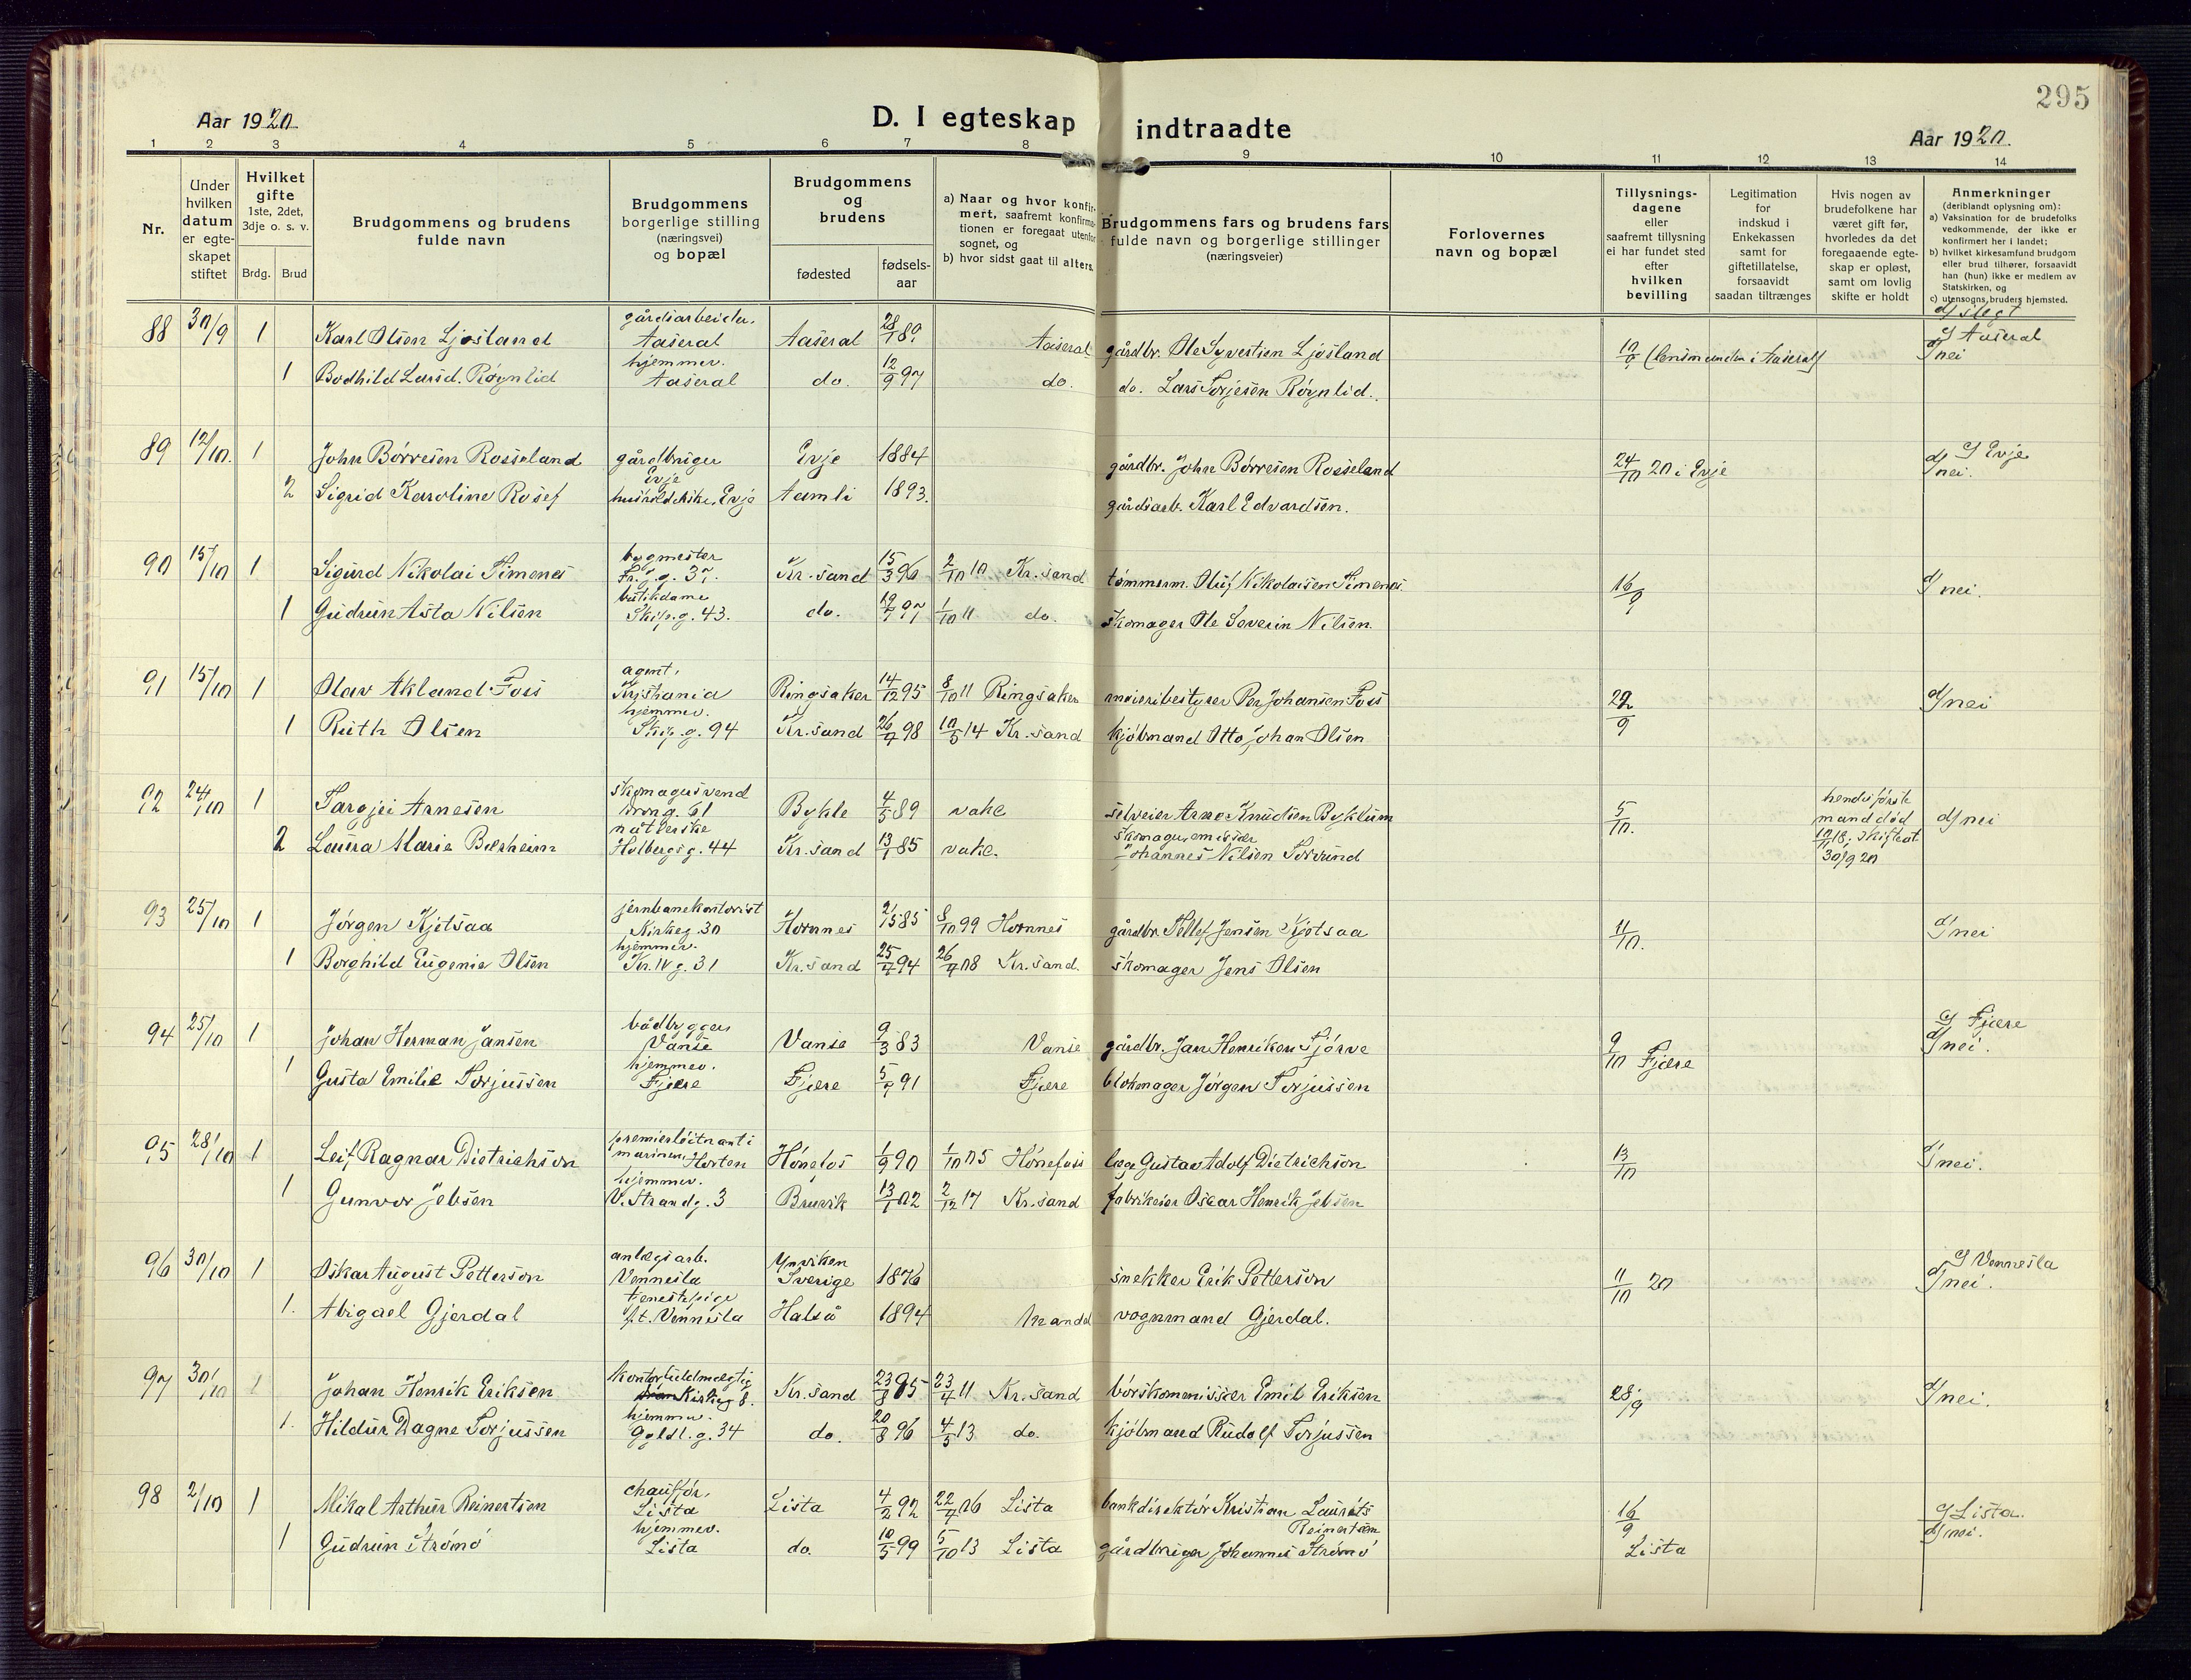 295
Aar 1920
D. I egteskap indtraadte
Aar 1920.
1 2 3 4 5 6 7 8 9 10 11 12 13 14
Nr.
Under hvilken datum er egteskapet stiftet
Hvilket gifte
1ste, 2det, 3dje o. s. v.
Brdg. Brud
Brudgommens og brudens fulde navn
Brudgommens borgerlige stilling (næringsvei) og bopæl
Brudgommens og brudens
fødested
fødselsaar
a) Naar og hvor konfirmert, saafremt konfirmationen er foregaat utenfor sognet, og
b) hvor sidst gaat til alters.
Brudgommens fars og brudens fars fulde navn og borgerlige stillinger (næringsveier)
Forlovernes navn og bopæl
Tillysningsdagene eller saafremt tillysning ei har fundet sted efter hvilken bevilling
Legitimation for indskud i Enkekassen samt for giftetillatelse, forsaavidt saadan tiltrænges
Hvis nogen av brudefolkene har været gift før, hvorledes da det foregaaende egteskap er opløst, samt om lovlig skifte er holdt
Anmerkninger
(deriblandt oplysning om):
a) Vaksination for de brudefolks vedkommende, der ikke er konfirmert her i landet;
b) hvilket kirkesamfund brudgom eller brud tilhører, forsaavidt han (hun) ikke er medlem av Statskirken, og
c) utensogns bruders hjemsted.
88 30/9 1 Karl Olsen Ljosland gårdsarbeider. Aaseral Aaseral 28/1 89. Aaseral gårdbr. Ole Syvertsen Ljosland 10/9 (lensmanden i Aaseral) d/ slegt c/ Aaseral d/ nei
1 Bodhild Larsd. Røynlid hjemmev. Aaseral do. 12/9 97 do. do. Lars Torjesen Røynlid.
89 12/10. 1 John Børresen Rosseland gårdbruger Evje Evje 1884 gårdbr. John Børresen Rosseland 24/10 20 i Evje c/ Evje d/ nei.
2 Sigrid Karoline Rosef Evje Aamli 1893. gårdsarb. Karl Edvardsen.
90 15/10 1 Sigurd Nikolai Timenes bygmester 37. Kr.sand 15/3 96 2/10 10 Kr.sand tømmerm. Oluf Nikolaisen Timenes. 16/9 d/ nei.
1 Gudrun Asta Nilsen butikdame Skip.g. 43. do. 19/7 97 1/10 11 do. skomager Ole Severin Nilsen.
91 15/10 1 Olav Akland Foss agent, Kristiania Ringsaker 14/12 95 8/10 11 Ringsaker meieribestyrer Per Johansen Foss 22/9 d/ nei
1 Ruth Olsen hjemmev. Skip.g. 94 Kr.sand 26/7 98 10/5 14 Kr.sand kjøbmand Otto Johan Olsen
92 24/10 1 Targjei Arnesen skomagersvend Dron.g. 61 Bykle 4/5 89 vake selveier Arne Knudsen Byklum 5/10. hendes første mand død 10/11 18, skifteat. 30/9 20 d/ nei
2 Laura Marie Berheim nåtlerske Holbergsg. 44 Kr.sand 13/1 85 vake. skomager, emissær Johannes Nilsen Torvund
93 25/10 1 Jørgen Kjetsaa jernbanekontorist Kirkeg. 30 Hornnes 2/1 85 8/10 99 Hornnes gårdbr. Tellef Jensen Kjetsaa 11/10. d/ nei
1 Borghild Eugenie Olsen hjemmev. Kr. IV g. 31 Kr.sand 25/7 94 26/4 08 Kr.sand. skomager Jens Olsen
94 25/10 1 Johan Herman Jansen bådbygger Vanse Vanse 9/3 83 Vanse gårdbr. Jan Henriksen Tjørve 9/10 Fjære c/ Fjære d/ nei.
1 Gusta Emilie Torjussen hjemmev. Fjære Fjære 5/7 91 Fjære blokmager Jørgen Torjussen
95 28/10 1 Leif Ragnar Dietrichson premierløitnant i marinen, Horten Hønefos 1/9 90 1/10 05 Hønefoss læge Gustav Adolf Dietrichson 13/10 d/ nei.
1 Gunvor Jebsen hjemmev. V. Strandg. 3 Bruvik 13/1 02 2/12 17 Kr.sand fabrikeier Oscar Henrik Jebsen
96 30/10 1 Oskar August Petterson anlægsarb. Vennesla Sverige 1876 snekker Erik Petterson 11/10 20 c/ Vennesla d/ nei.
1. Abigael Gjerdal tenestepige p.t. Vennesla Halså 1894 Mandal vognmand Gjerdal.
97 30/10 1 Johan Henrik Eriksen kontorfuldmægtig Kirkeg 8. Kr.sand 23/8 95 23/4 11 Kr.sand børskommissær Emil Eriksen 28/9 d/ nei.
1. Hildur Dagne Torjussen hjemmev. Gyldl.g. 34 do. 20/8 96 4/5 13 do. kjøbmand Rudolf Torjussen
98 2/10 1 Mikal Arthur Reinertsen chauffør, Lista Lista 4/2 92 22/7 06 Lista bankdirektør Kristian Laurits Reinertsen 16/9 Lista c/ Lista. d/ nei.
1 Gudrun Strømø hjemmev. Lista do. 10/5 99 5/10 13 Lista gårdbruger Johannes Strømø